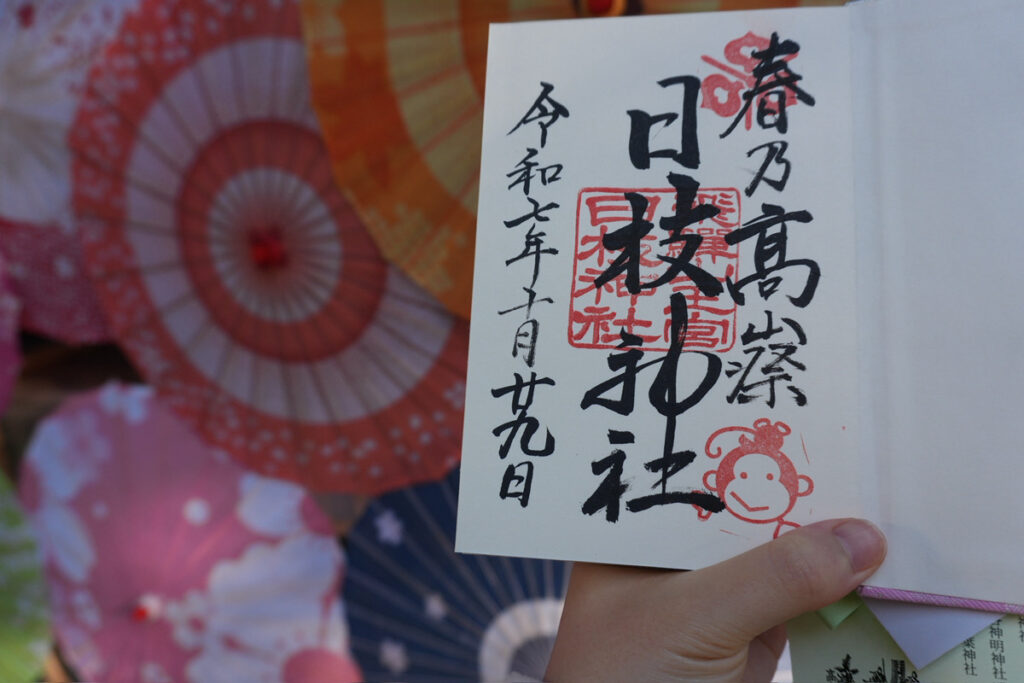 春乃髙山祭
日枝神社
飛驒山王宮
日枝神社
令和七年十月廿九日
神明神社
葉神社